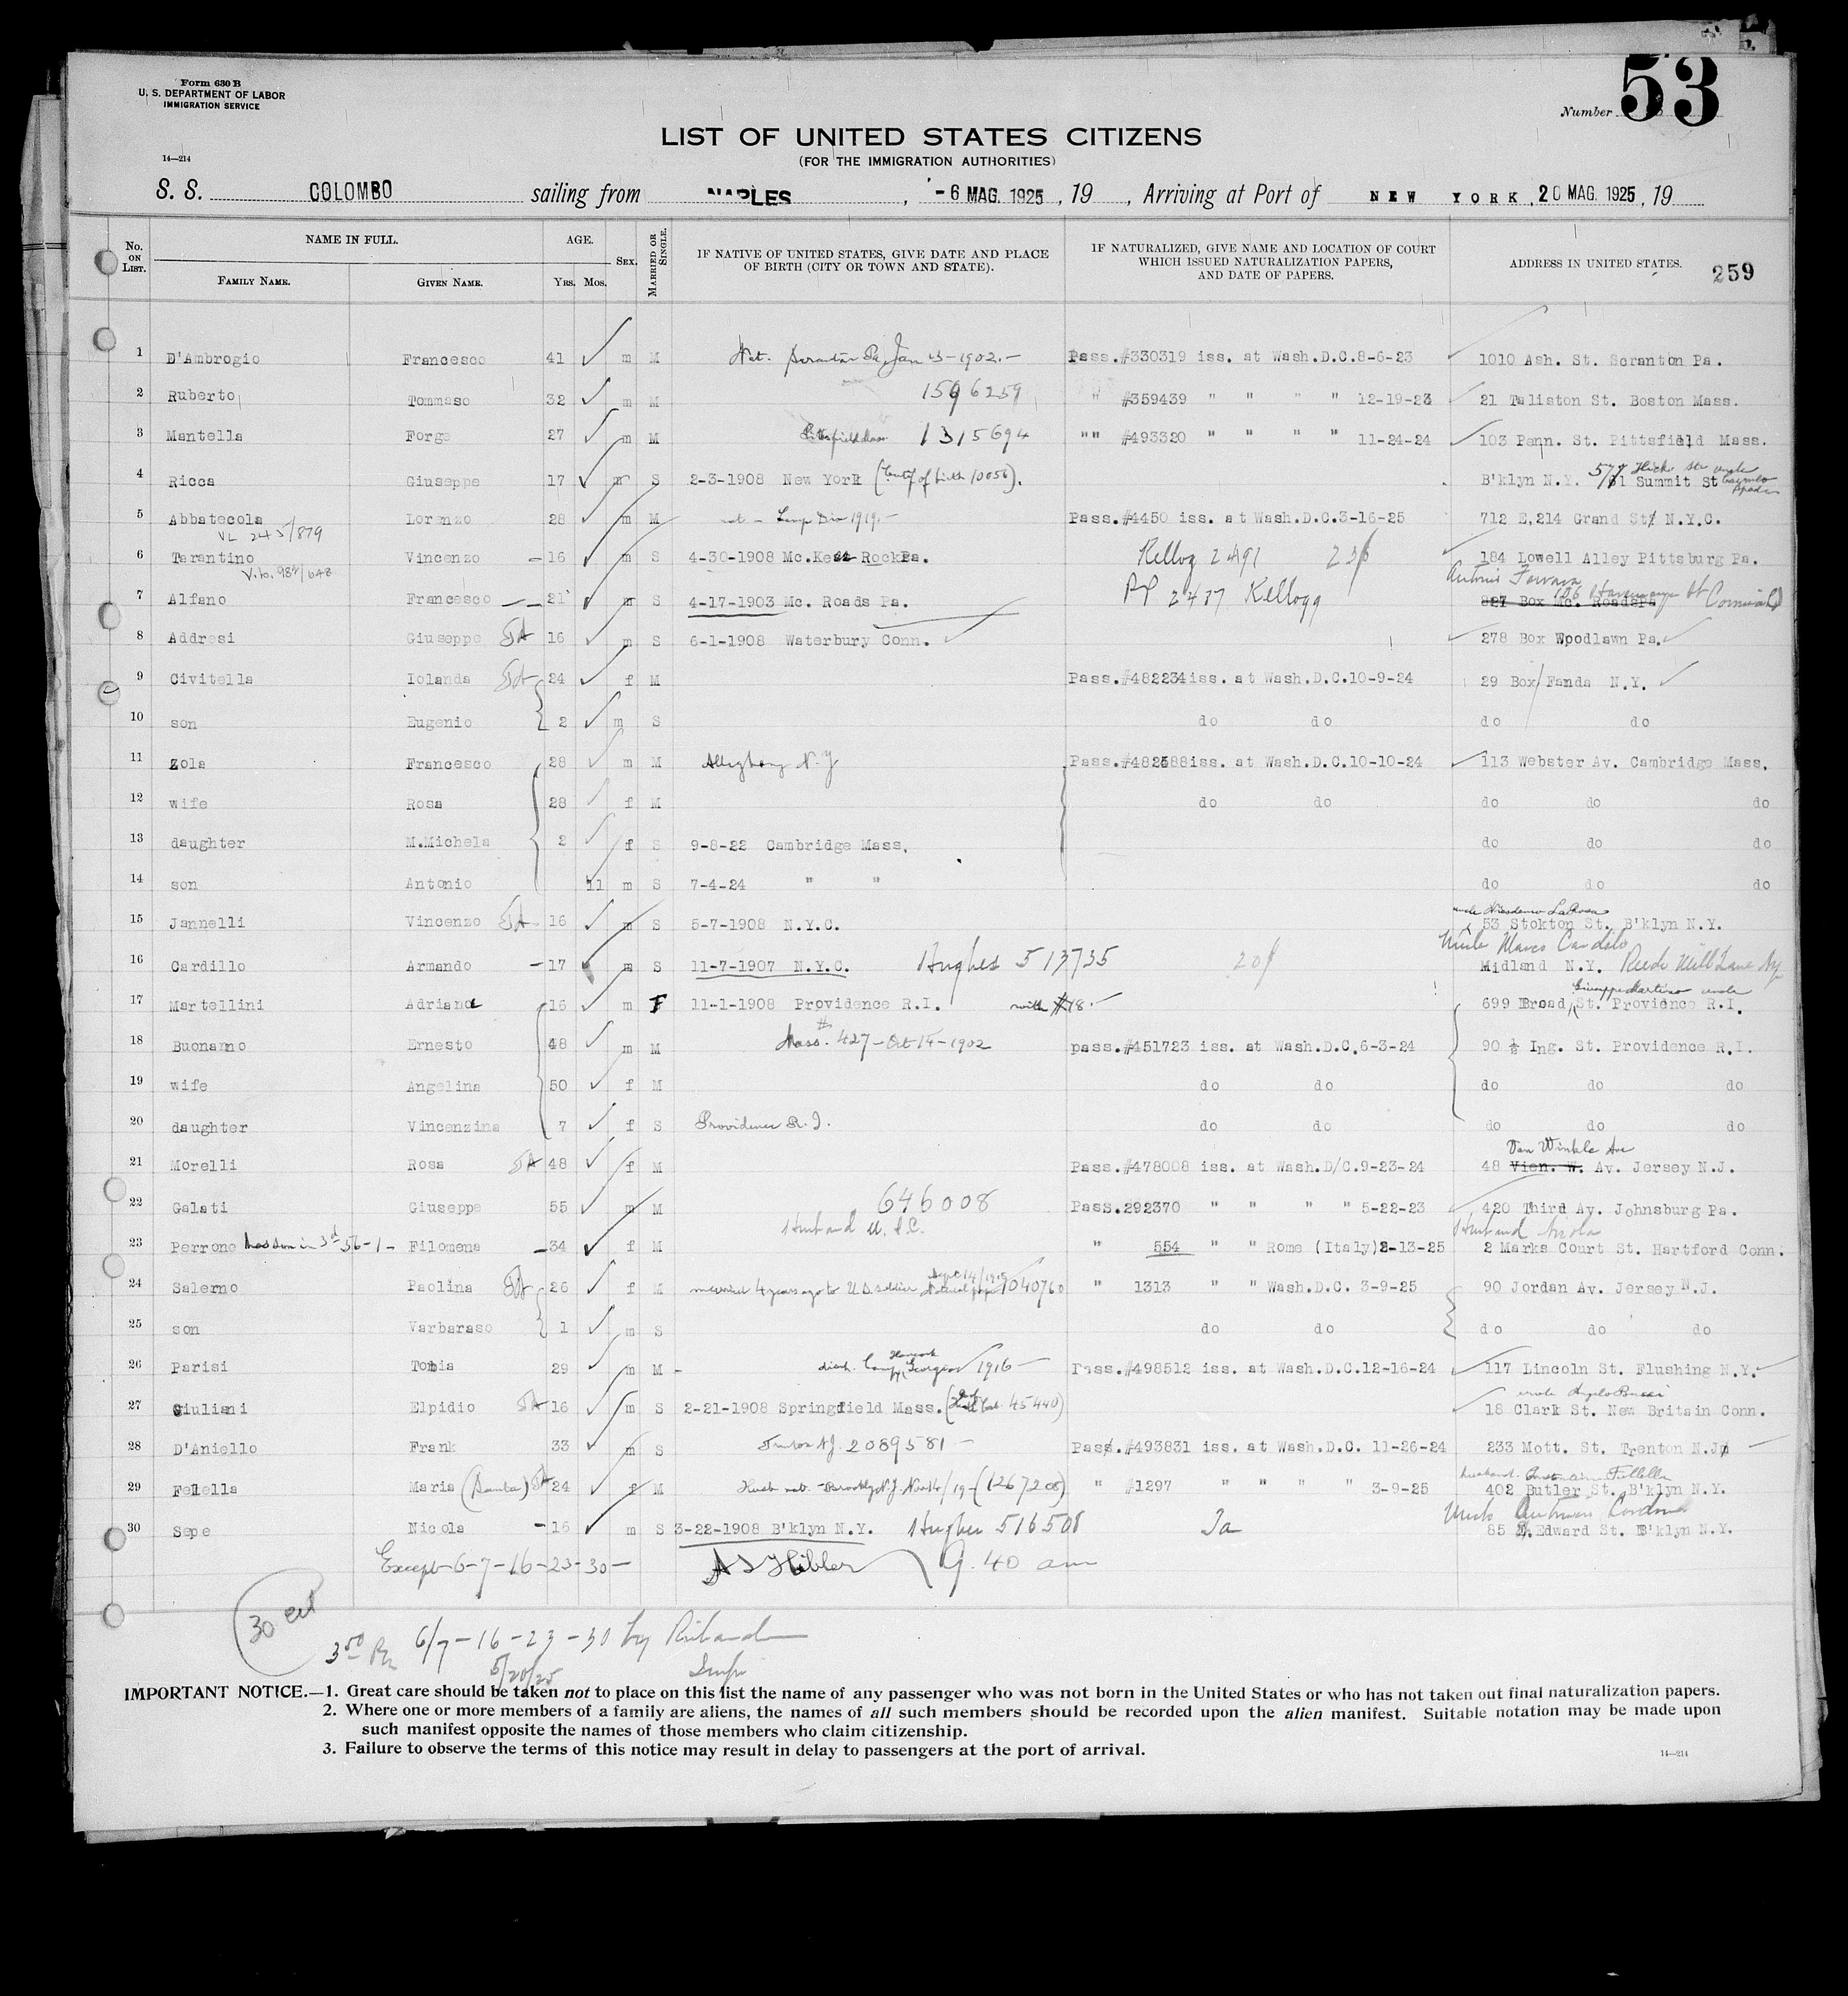 Form 630 B
U. S. DEPARTMENT OF LABOR
IMMIGRATION SERVICE
14—214
Number 53
LIST OF UNITED STATES CITIZENS
(FOR THE IMMIGRATION AUTHORITIES)
S. S. COLOMBO sailing from NAPLES, -6 MAG. 1925, 19 , Arriving at Port of NEW YORK, 20 MAG. 1925, 19
No. on List. NAME IN FULL. AGE. Sex. Married or Single. IF NATIVE OF UNITED STATES, GIVE DATE AND PLACE OF BIRTH (CITY OR TOWN AND STATE). IF NATURALIZED, GIVE NAME AND LOCATION OF COURT WHICH ISSUED NATURALIZATION PAPERS, AND DATE OF PAPERS. ADDRESS IN UNITED STATES. 259
Family Name. Given Name. Yrs. Mos.
1 D'Ambrogio Francesco 41 m M Nat. Scranton Pa. Jan 1902.— Pass.#330319 iss. at Wash.D.C.8-6-23 1010 Ash. St. Scranton Pa.
2 Ruberto Tommaso 32 m M 1596259 " #359439 " " " " 12-19-23 21 Taliston St. Boston Mass.
3 Mantella Forge 27 m M Pittsfield Mass 1315694 "" #493320 " " " " 11-24-24 103 Penn. St. Pittsfield Mass.
4 Ricca Giuseppe 17 m S 2-3-1908 New York (Certif of birth 10056). B'klyn N.Y. 571 Hicks Str uncle Summit St
5 Abbatecola Lorenzo 28 m M nat - Camp Dix 1919.- Pass.#4450 iss. at Wash.D.C.3-16-25 712 E,214 Grand St N.Y.C.
VL 245/879
6 Tarantino Vincenzo -16 m S 4-30-1908 Mc.Kess RockPa. Kellog 2491 184 Lowell Alley Pittsburg Pa.
V.L. 982/648
7 Alfano Francesco -- 21 m S 4-17-1903 Mc. Roads Pa. PP 2437 Kellogg 827 Box Mc. RoadsPa
8 Addresi Giuseppe SA 16 m S 6-1-1908 Waterbury Conn. 278 Box Woodlawn Pa.
9 Civitella Iolanda SA 24 f M Pass.#482234iss. at Wash.D.C.10-9-24 29 Box Fanda N.Y.
10 son Eugenio 2 m S do do do do
11 Zola Francesco 28 m M Allegheny N.Y Pass.#482588iss. at Wash.D.C.10-10-24 113 Webster Av. Cambridge Mass.
12 wife Rosa 28 f M do do do do do
13 daughter M.Michela 2 f S 9-8-22 Cambridge Mass. do do do
14 son Antonio 11 m S 7-4-24 " " do do do
15 Jannelli Vincenzo SA 16 m S 5-7-1908 N.Y.C. 53 Stokton St. B'klyn N.Y.
16 Cardillo Armando -17 m S 11-7-1907 N.Y.C. Hughes 513735 Midland N.Y.
17 Martellini Adriana 16 m F 11-1-1908 Providence R.I. with #18.- 699 Broad St. Providence R.I.
18 Buonanno Ernesto 48 m M Mass. #427-Oct 14-1902 pass.#451723 iss. at Wash.D.C.6-3-24 90 ½ Ing. St. Providence R.I.
19 wife Angelina 50 f M do do do do do
20 daughter Vincenzina 7 f S Providence R.I. do do do do do
21 Morelli Rosa SA 48 f M Pass.#478008 iss. at Wash.D/C.9-23-24 48 Vien. W. Van Winkle Ave Av. Jersey N.J.
22 Galati Giuseppe 55 m M 646008 Pass.292370 " " " " 5-22-23 420 Third Av. Johnsburg Pa.
23 Perrone has son in 3d 56-1- Filomena -34 f M Husband U.S.C. " 554 " " Rome (Italy)2-13-25 2 Marks Court St. Hartford Conn.
24 Salerno Paolina SA 26 f M married 4 years ago to U.S. soldier 1040760 " 1313 " " Wash.D.C. 3-9-25 90 Jordan Av. Jersey N.J.
25 son Varbaraso 1 m S do do do do do
26 Parisi Tobia 29 m M - Camp Hancock Georgia 1916 — Pass.#498512 iss. at Wash.D.C.12-16-24 117 Lincoln St. Flushing N.Y.
27 Giuliani Elpidio SA 16 m S 2-21-1908 Springfield Mass. 45440) uncle Angelo 18 Clark St. New Britain Conn.
28 D'Aniello Frank 33 m S Trenton N.J. 2089581 - Pass.#493831 iss. at Wash.D.C. 11-26-24 233 Mott. St. Trenton N.J
29 Felella Maria (Santa) SA 24 f M (1267208) " #1297 " " " " 3-9-25 husband 402 Butler St. B'klyn N.Y.
30 Sepe Nicola -16 m S 3-22-1908 B'klyn N.Y. Hughes 516508 85 Edward St. B'klyn N.Y.
Except-6-7-16-23-30- 9.40 am
30
6/7-16-23-30 by
5/20/25
IMPORTANT NOTICE.—1. Great care should be taken not to place on this list the name of any passenger who was not born in the United States or who has not taken out final naturalization papers.
2. Where one or more members of a family are aliens, the names of all such members should be recorded upon the alien manifest. Suitable notation may be made upon
such manifest opposite the names of those members who claim citizenship.
3. Failure to observe the terms of this notice may result in delay to passengers at the port of arrival.
14—214